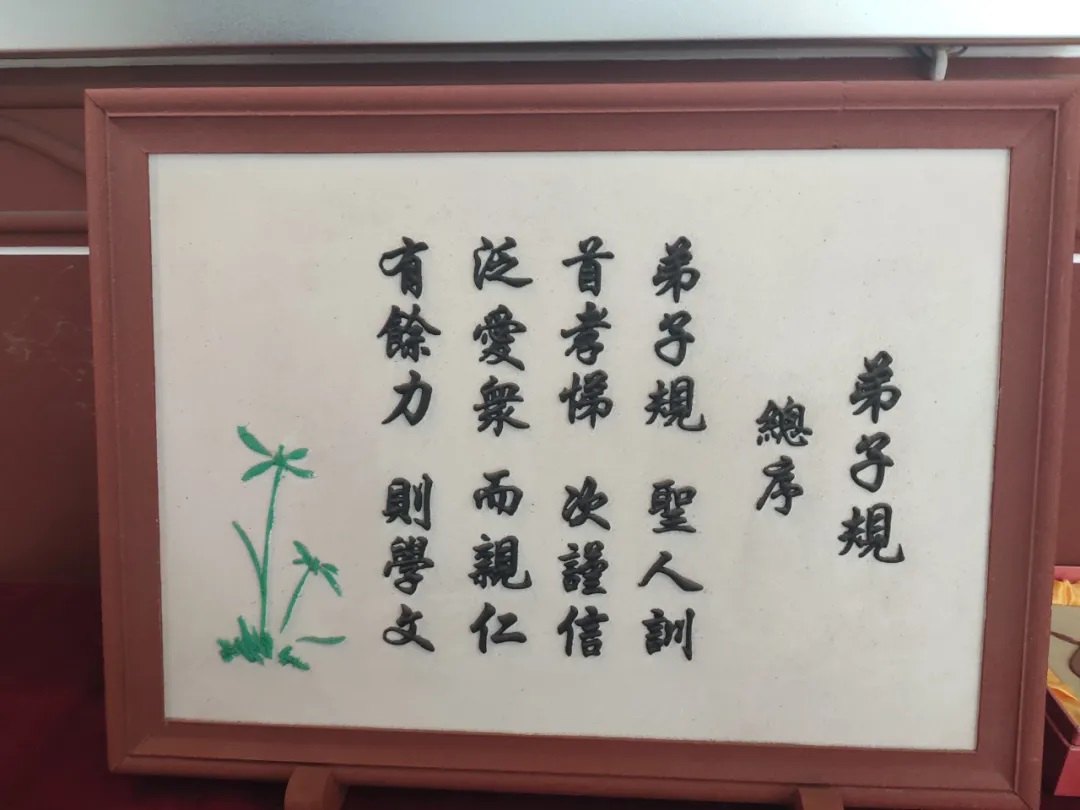 弟子規
總序
弟子規 聖人訓
首孝悌 次謹信
泛愛衆 而親仁
有餘力 則學文